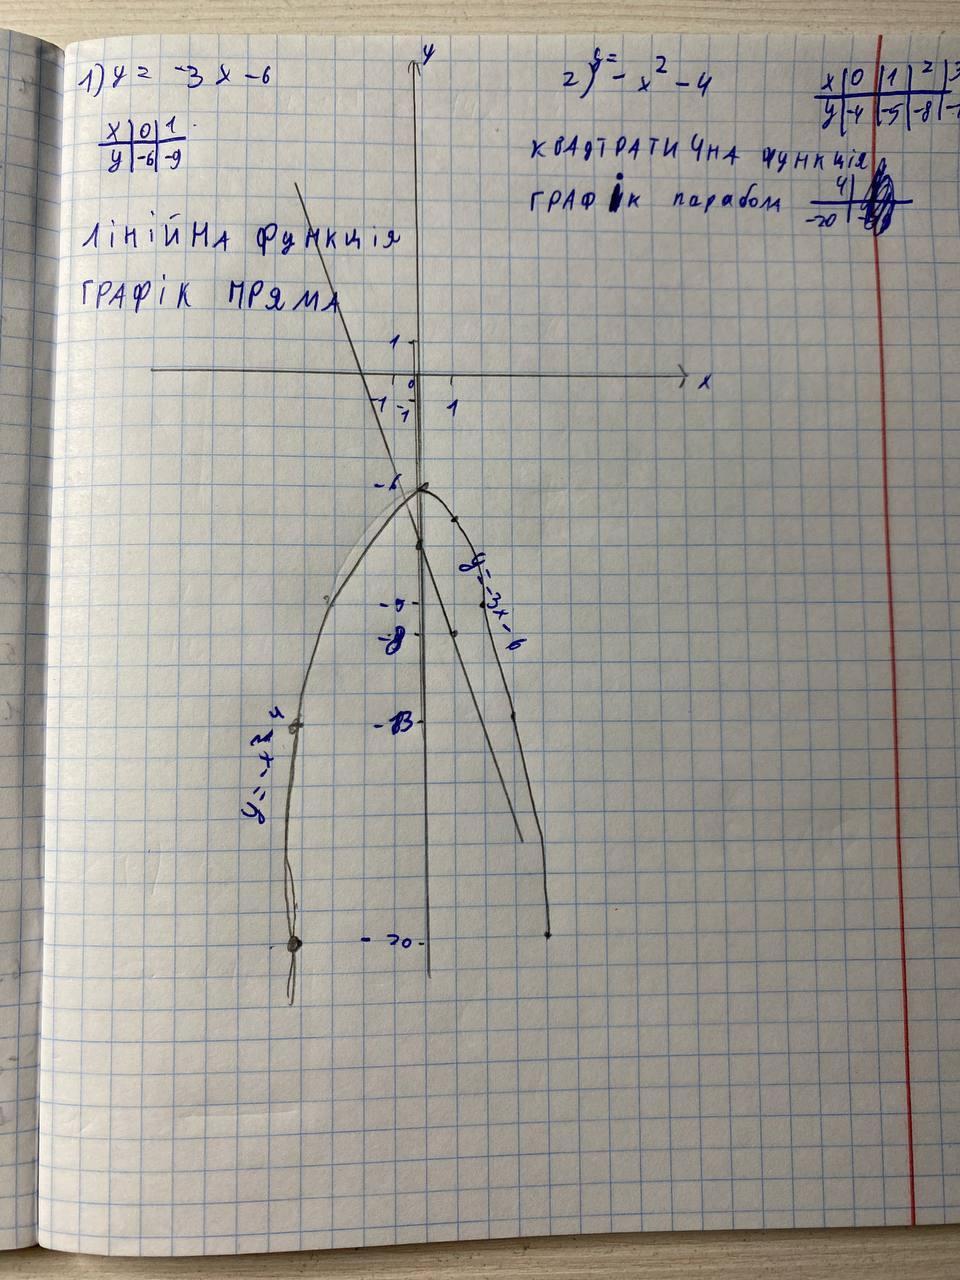 1) y = -3x - 6
x | 0 | 1
y | -6 | -9
Лінійна функція
Графік пряма
2) y = -x² - 4
x | 0 | 1 | 2 | 3
y | -4 | -5 | -8
Квадратична функція
Графік парабола
4
-20
y
x
1
0
-1
-1
1
-6
-13
-20
y = -3x - 6